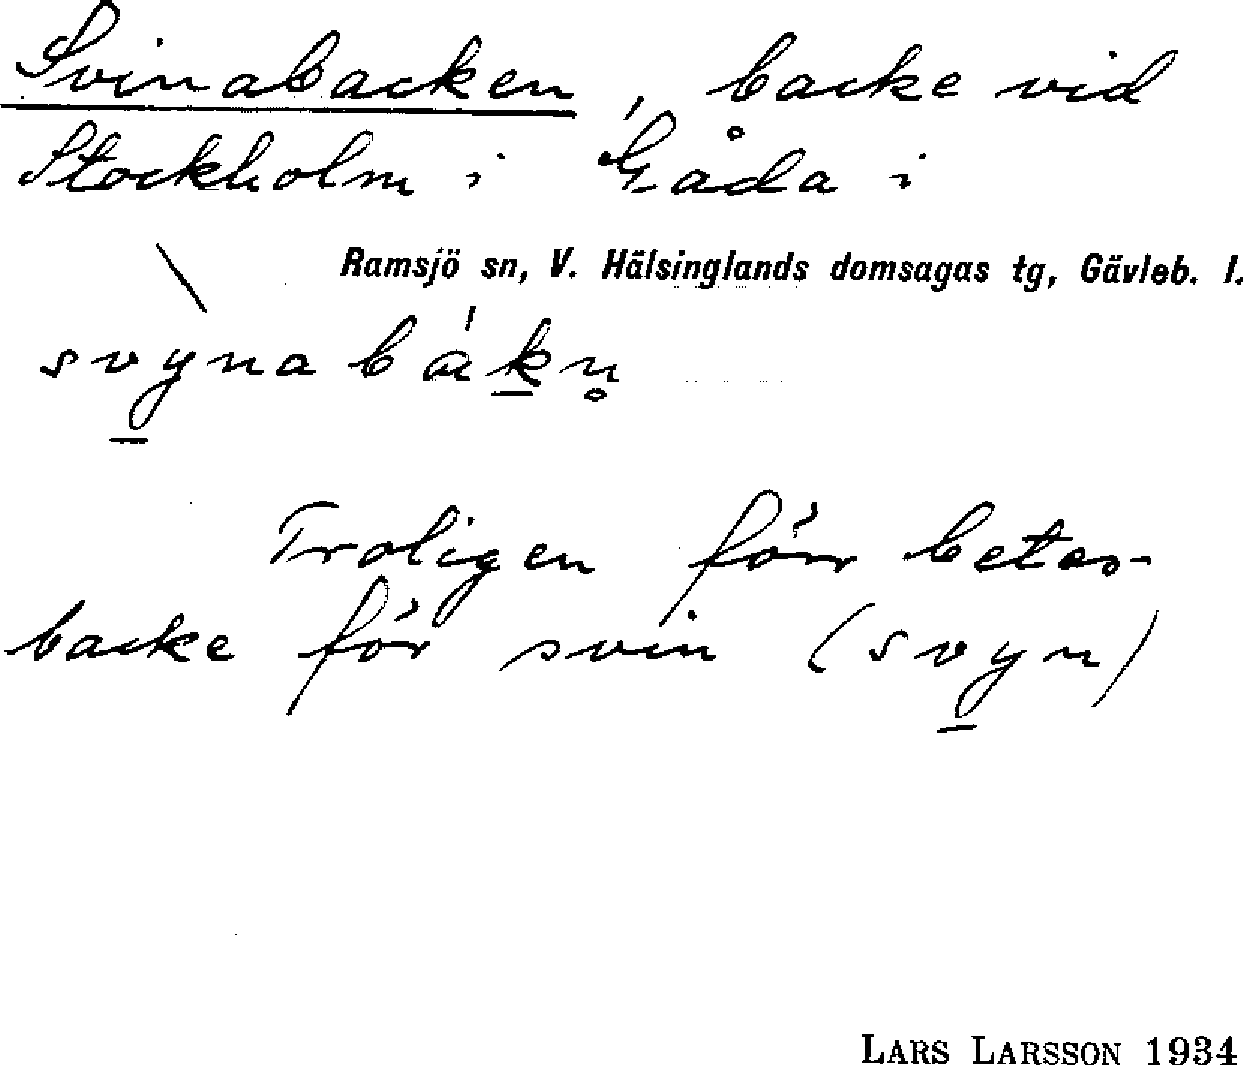 Svinabacken, backe vid
Stockholm i Gåda i
Ramsjö sn, V. Hälsinglands domsagas tg, Gävleb. l.
svy̠nàbák̠n̥
Troligen förr betes-
backe för svin (svy̠n)
LARS LARSSON 1934